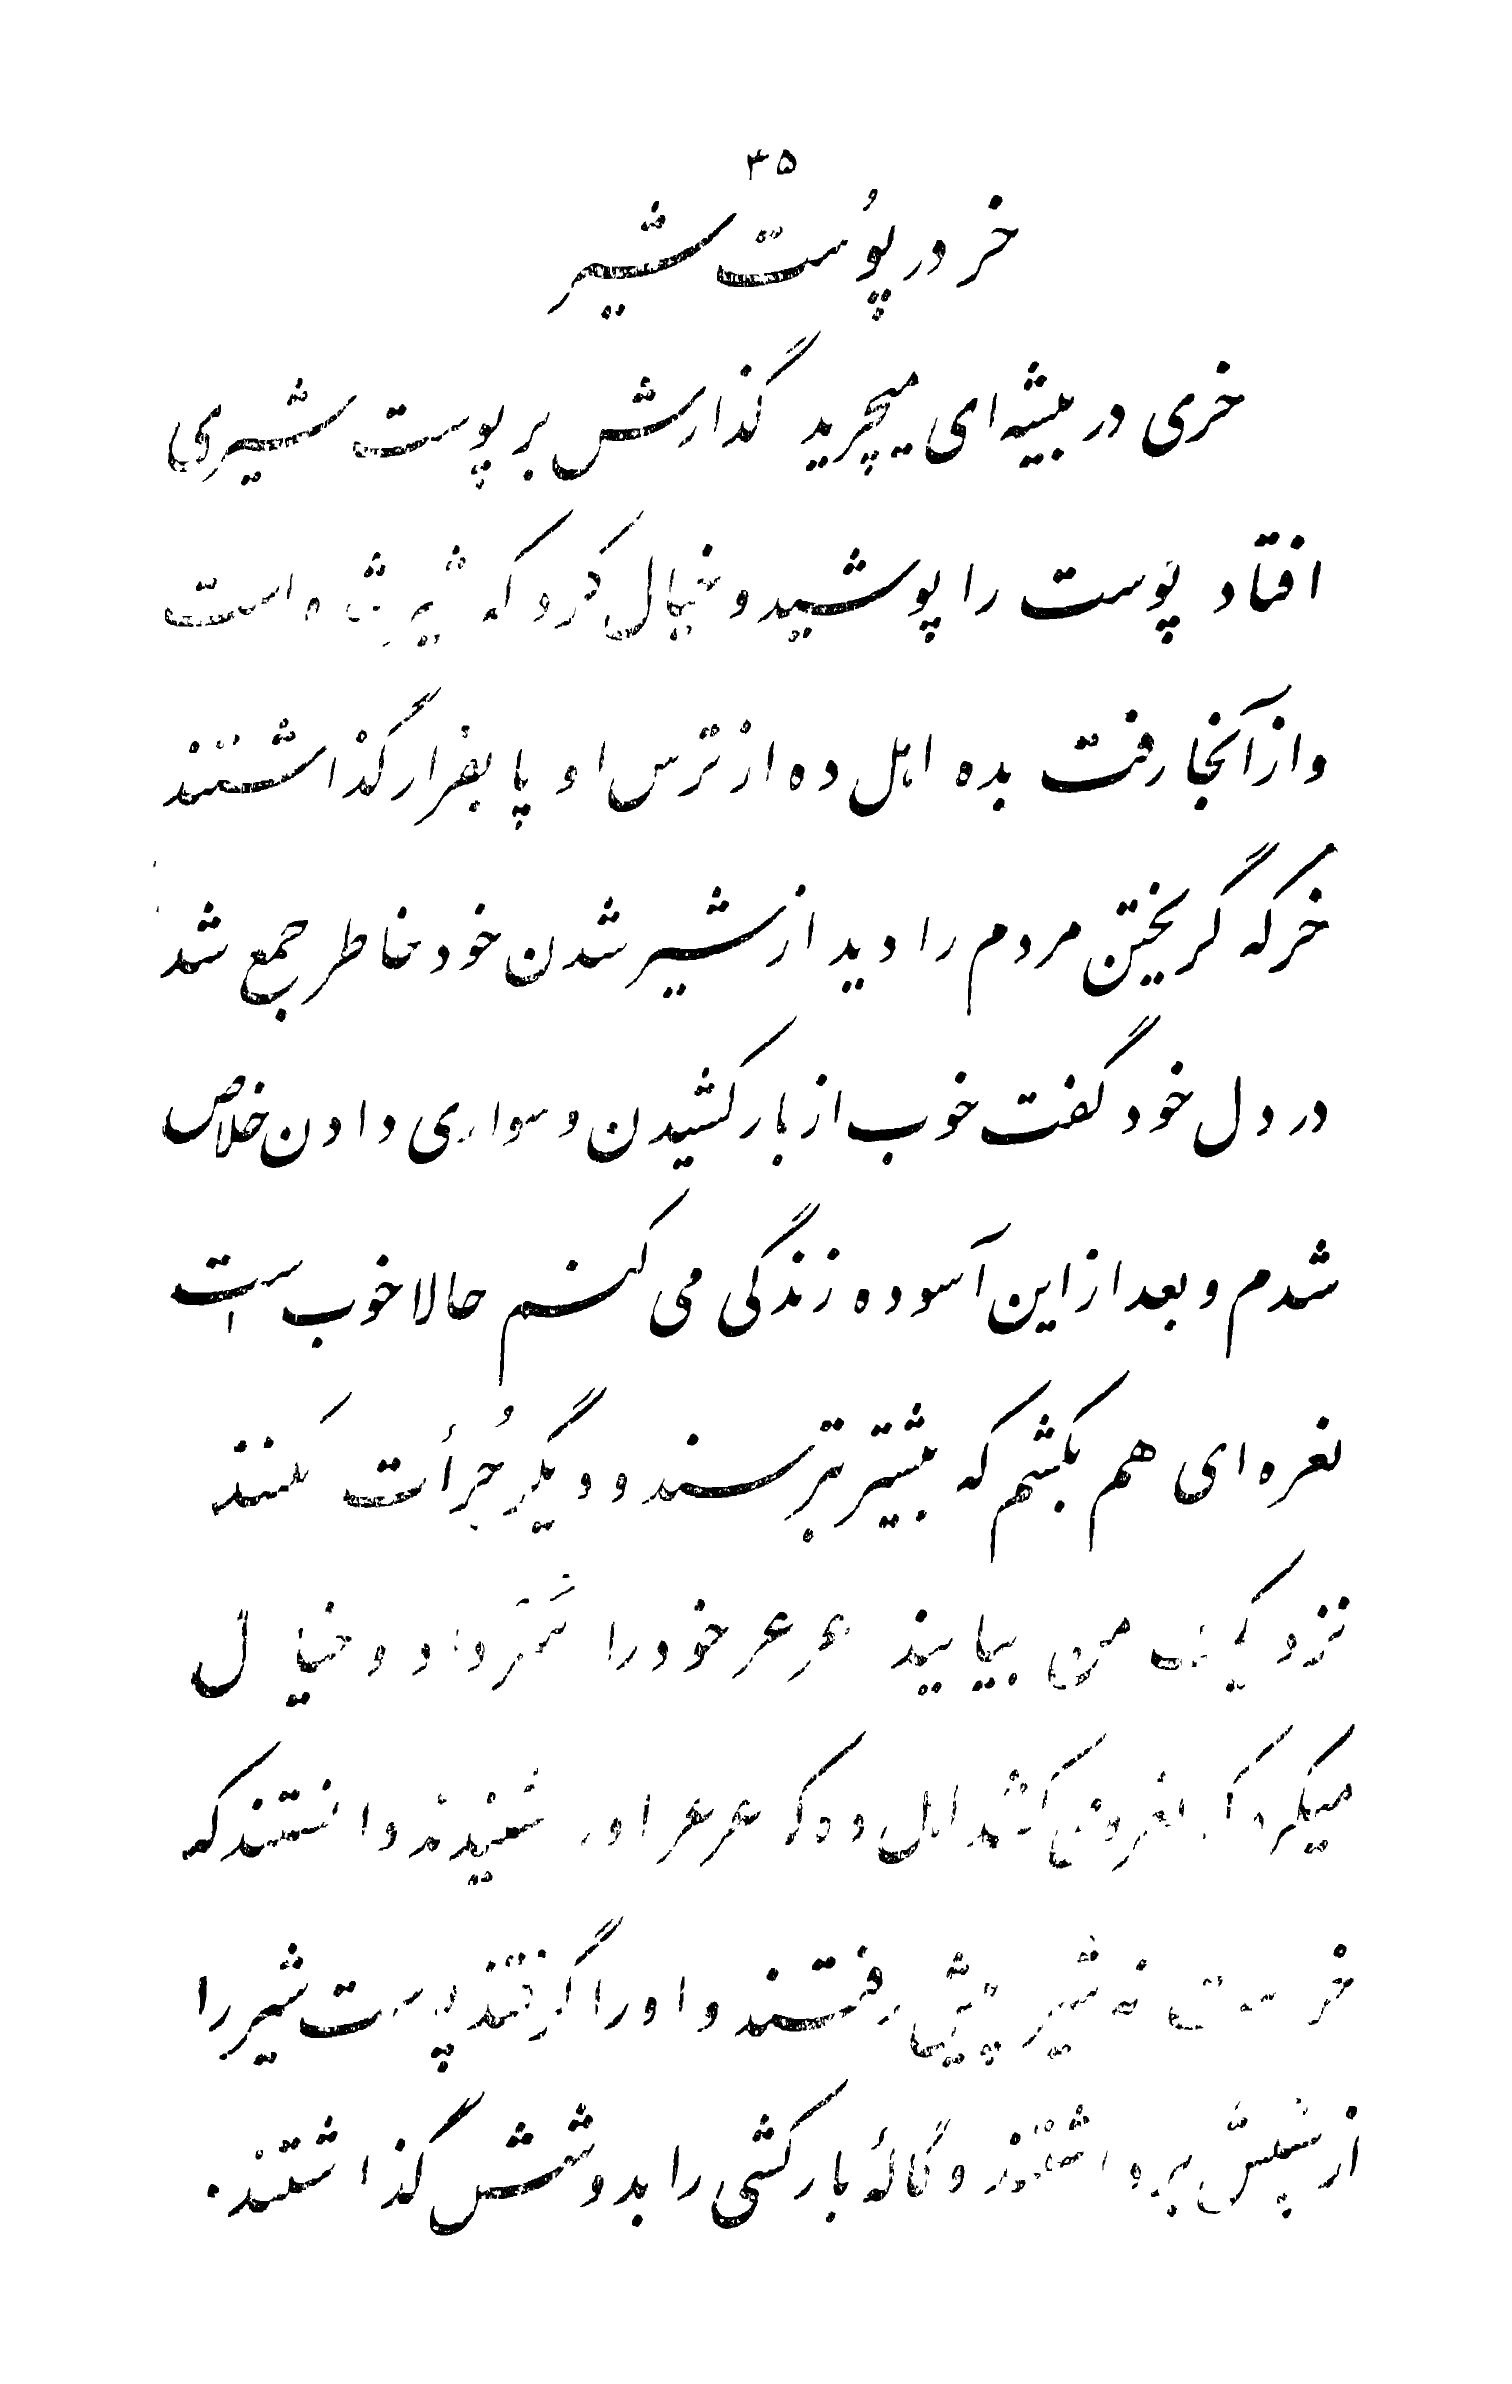 ۳۵
خر در پوُست شیر
خری در بیشه ای میچرید گذارش بر پوست شیری
افتاد پوست را پوشید و خیال کرد که شیر شده است
و از آنجا رفت بده اهل ده از ترس او پا بفرار گذاشتند
خر که گریختن مردم را دید از شیر شدن خود خاطر جمع شد
در دل خود گفت خوب از بار کشیدن و سواری دادن خلاص
شدم و بعد از این آسوده زندگی می کنم حالا خوب است
نعره ای هم بکشم که بیشتر بترسند و دیگر جُرأت نکنند
نزدیک من بیایند عرعر خود را سَر داد و خیال
میکرد که نعره می کشد اهل ده که عرعر او را شنیدند دانستند که
خر است نه شیر پیش رفتند و او را گرفتند پوست شیر را
از پشتش برداشتند و گالهٔ بار کشی را بدوشش گذاشتند.